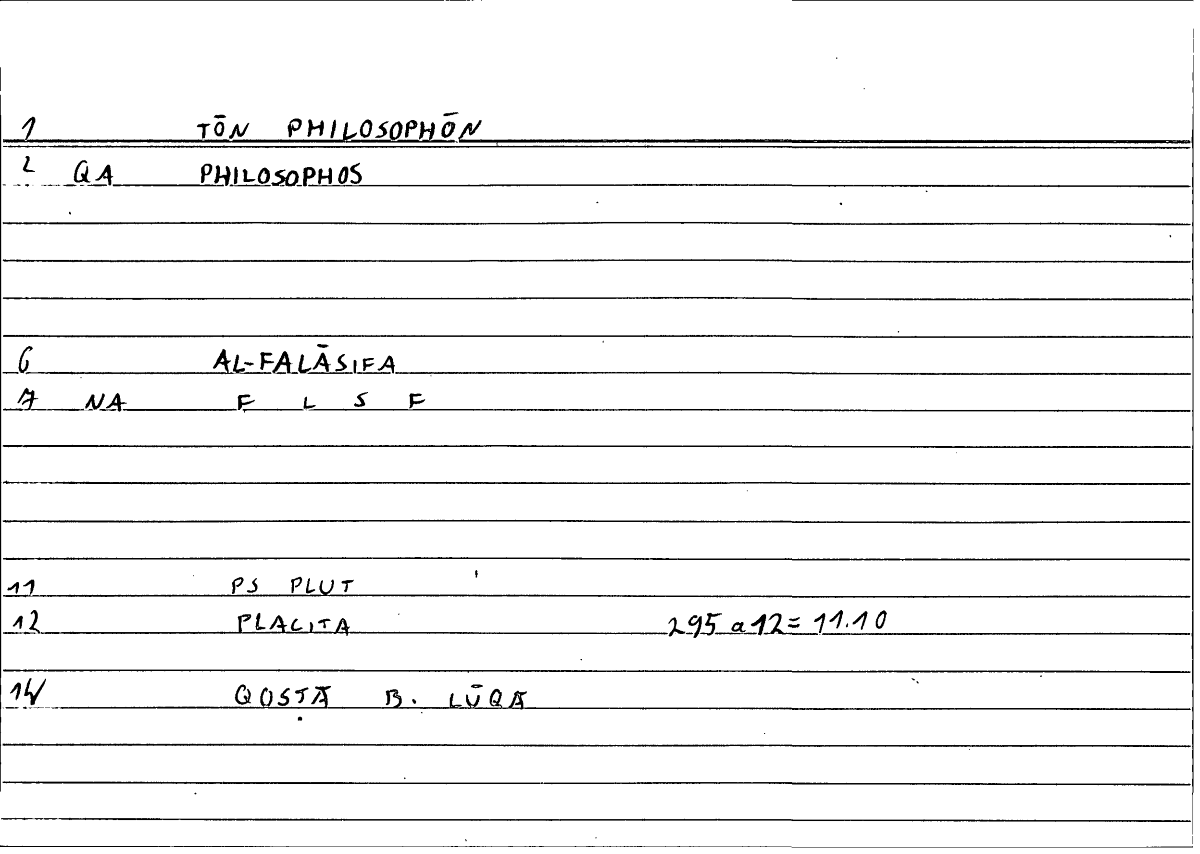 1 TŌN PHILOSOPHŌN
2 QA PHILOSOPHOS
6 AL-FALĀSIFA
7 NA F L S F
11 PS PLUT
12 PLACITA 295 a 12 = 11.10
14 QOSṬĀ B. LŪQĀ